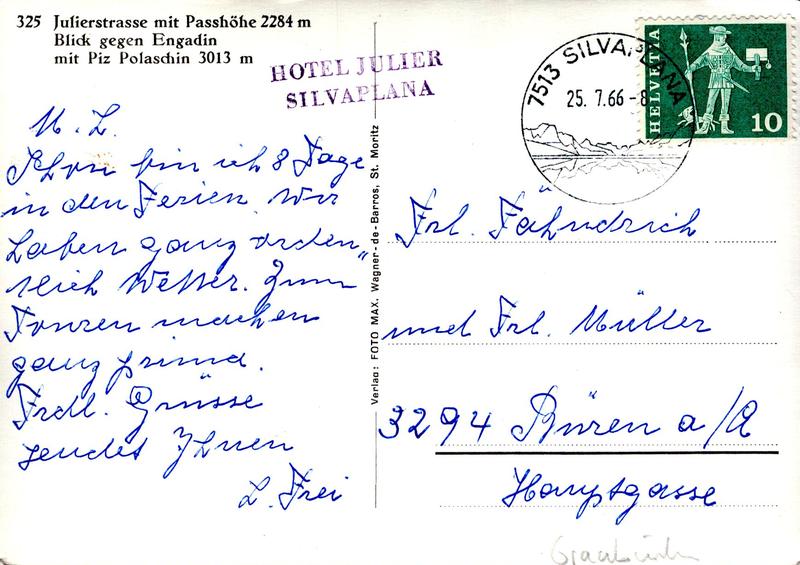 325 Julierstrasse mit Passhöhe 2284 m
Blick gegen Engadin
mit Piz Polaschin 3013 m
HOTEL JULIER
SILVAPLANA
7513 SILVAPLANA
25. 7.66 -8
HELVETIA
10
M. L.
Schon bin ich 8 Tage
in den Ferien. Wir
haben ganz orden„
tlich Wetter. Zum
Touren machen
ganz prima.
Frdl. Grüsse
sendet Ihnen
L. Frei
Verlag: FOTO MAX. Wagner-de-Barros, St. Moritz
Frl. Fähndrich
und Frl. Müller
3294 Büren a/A
Hauptgasse
Graubünden